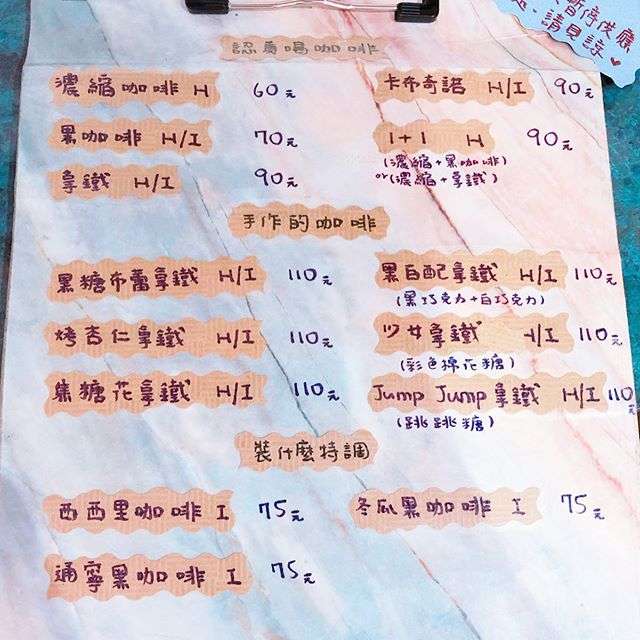 暫停供應
請見諒♥
認真喝咖啡
濃縮咖啡 H 60元
卡布奇諾 H/I 90元
黑咖啡 H/I 70元
1+1 H 90元
(濃縮+黑咖啡)
or(濃縮+拿鐵)
拿鐵 H/I 90元
手作的咖啡
黑糖布蕾拿鐵 H/I 110元
黑白配拿鐵 H/I 110元
(黑巧克力+白巧克力)
烤杏仁拿鐵 H/I 110元
少女拿鐵 H/I 110元
(彩色棉花糖)
焦糖花拿鐵 H/I 110元
Jump Jump拿鐵 H/I 110元
(跳跳糖)
裝什麼特調
西西里咖啡 I 75元
冬瓜黑咖啡 I 75元
通寧黑咖啡 I 75元